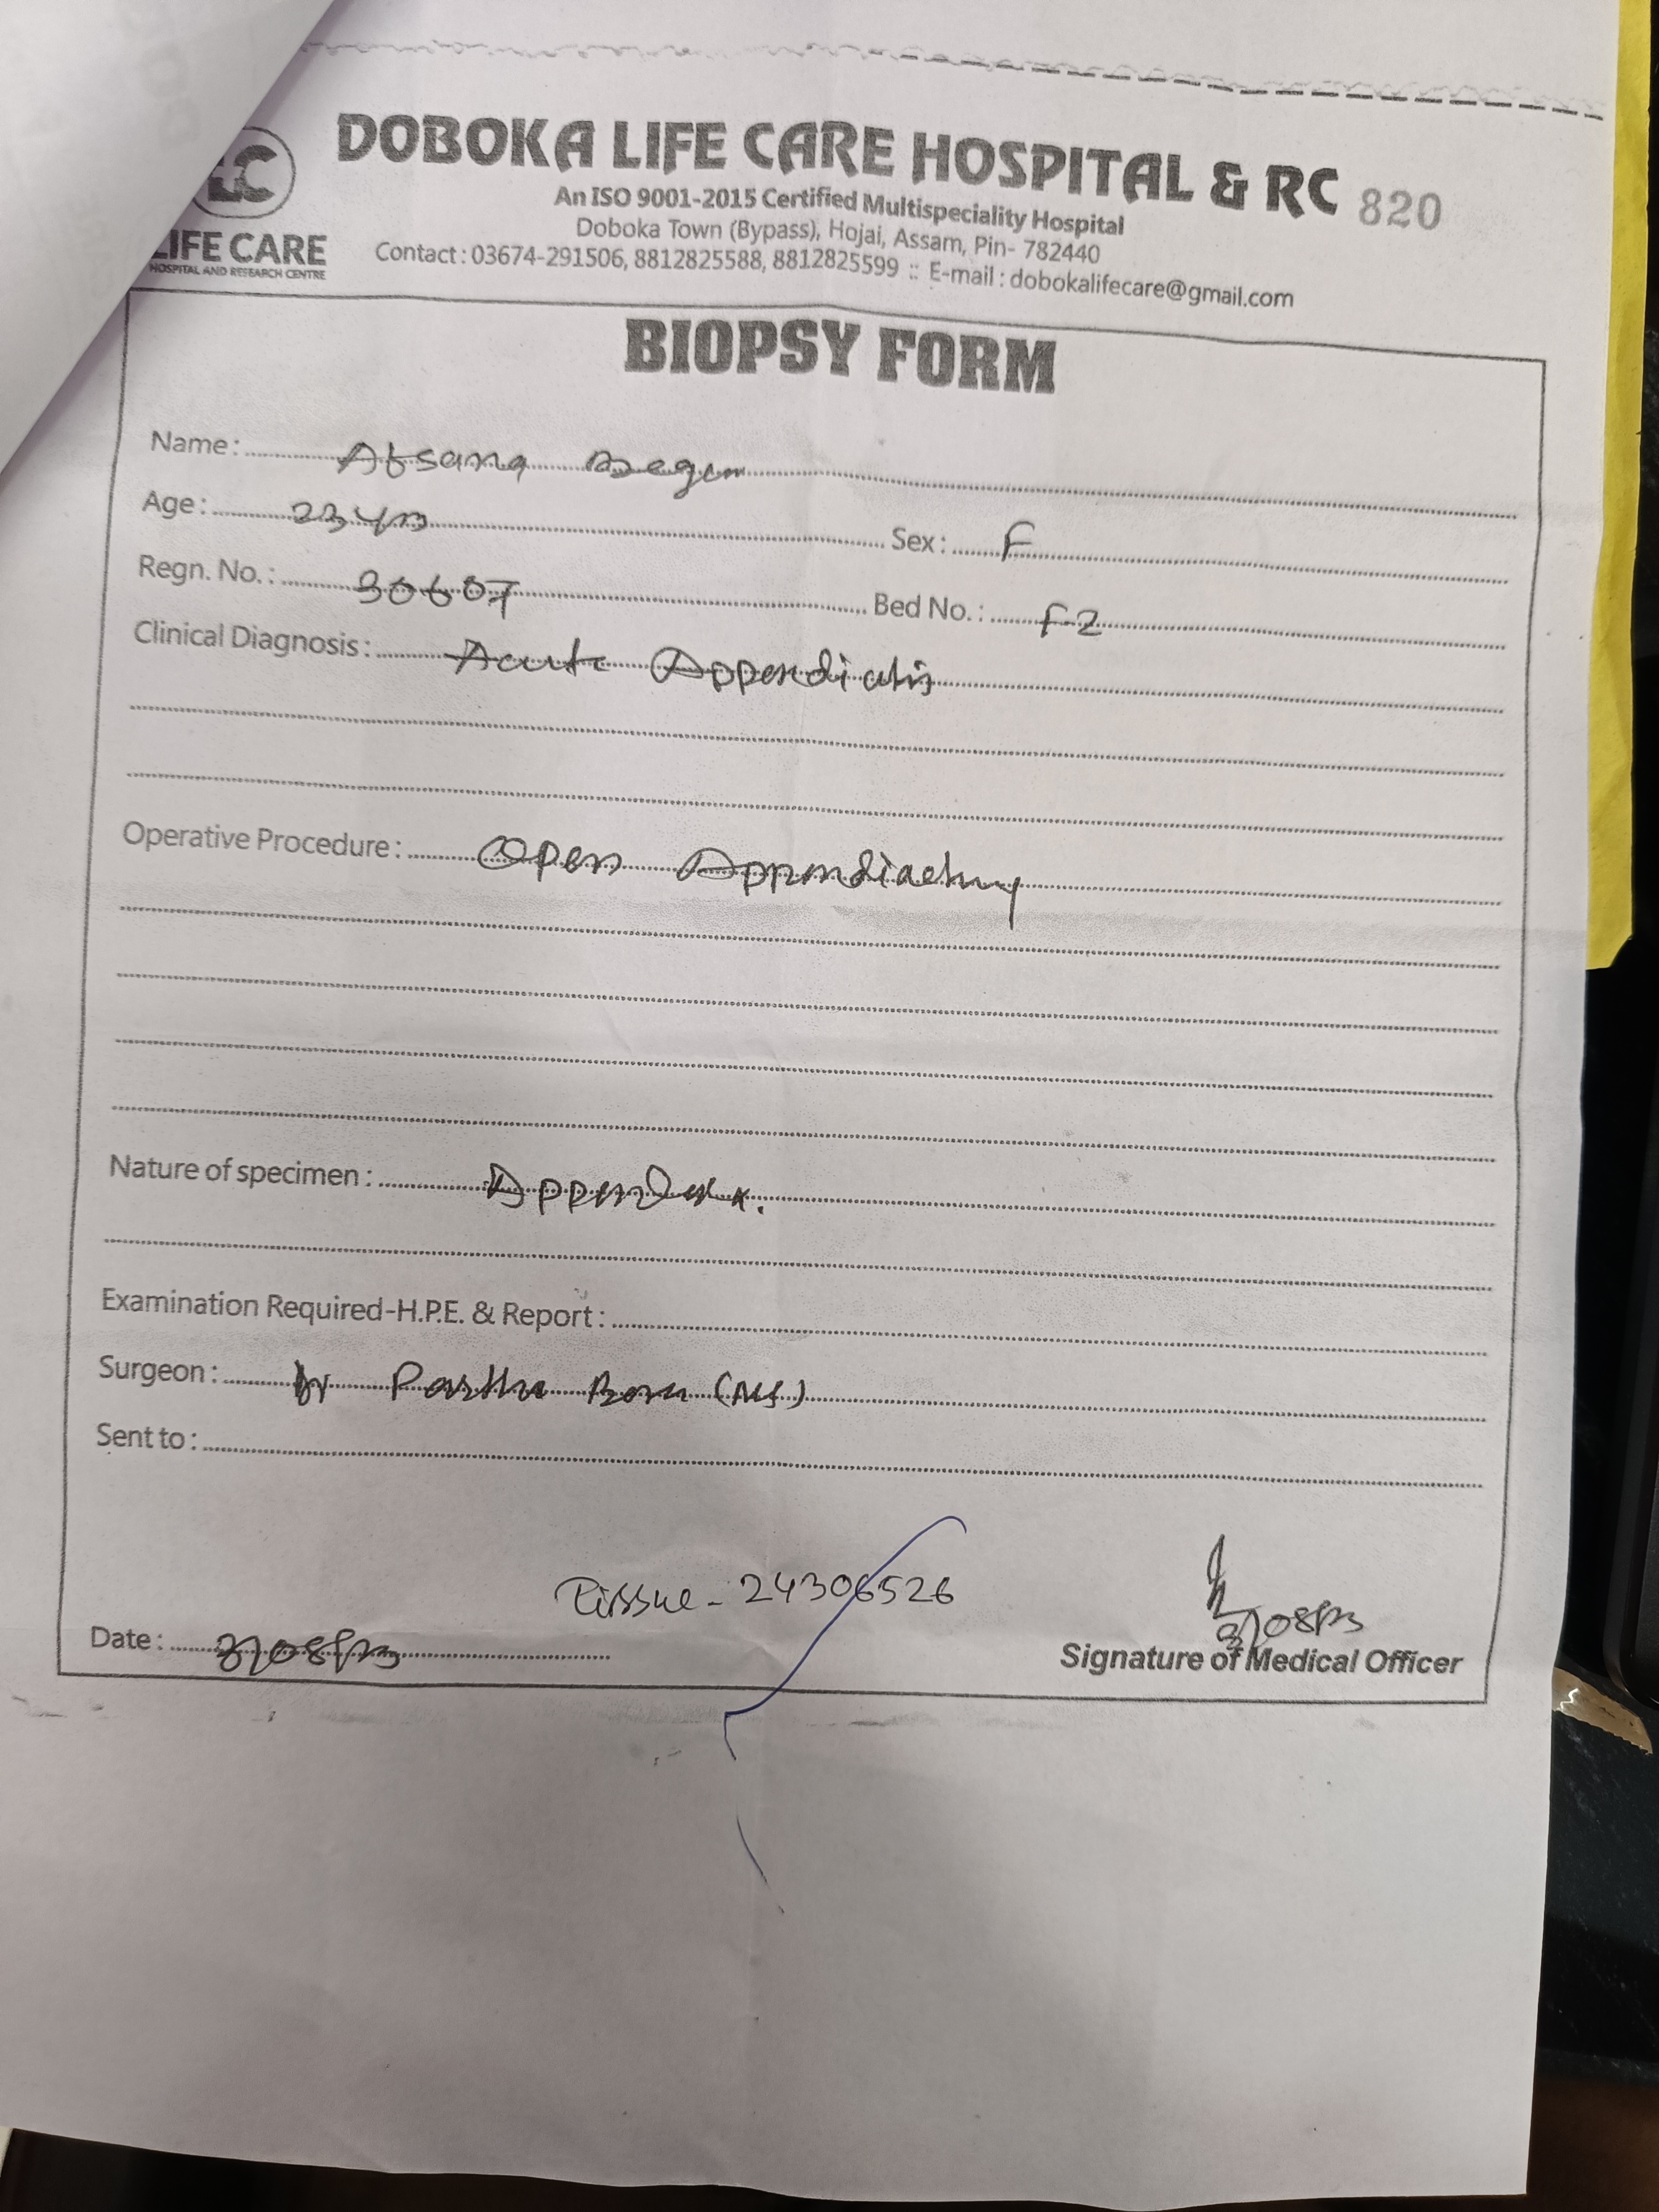 DOBOKA LIFE CARE HOSPITAL & RC 820
An ISO 9001-2015 Certified Multispeciality Hospital
Doboka Town (Bypass), Hojai, Assam, Pin- 782440
Contact : 03674-291506, 8812825588, 8812825599 :: E-mail : dobokalifecare@gmail.com
LIFE CARE
HOSPITAL AND RESEARCH CENTRE
BIOPSY FORM
Name : Afsana Begum
Age : 23 yrs Sex : F
Regn. No. : 30607 Bed No. : F2
Clinical Diagnosis : Acute Appendicitis
Operative Procedure : Open Appendicectomy
Nature of specimen : Appendix.
Examination Required-H.P.E. & Report :
Surgeon : Dr Partha Bora (MS)
Sent to :
Tissue - 24306526
Date :
Signature of Medical Officer